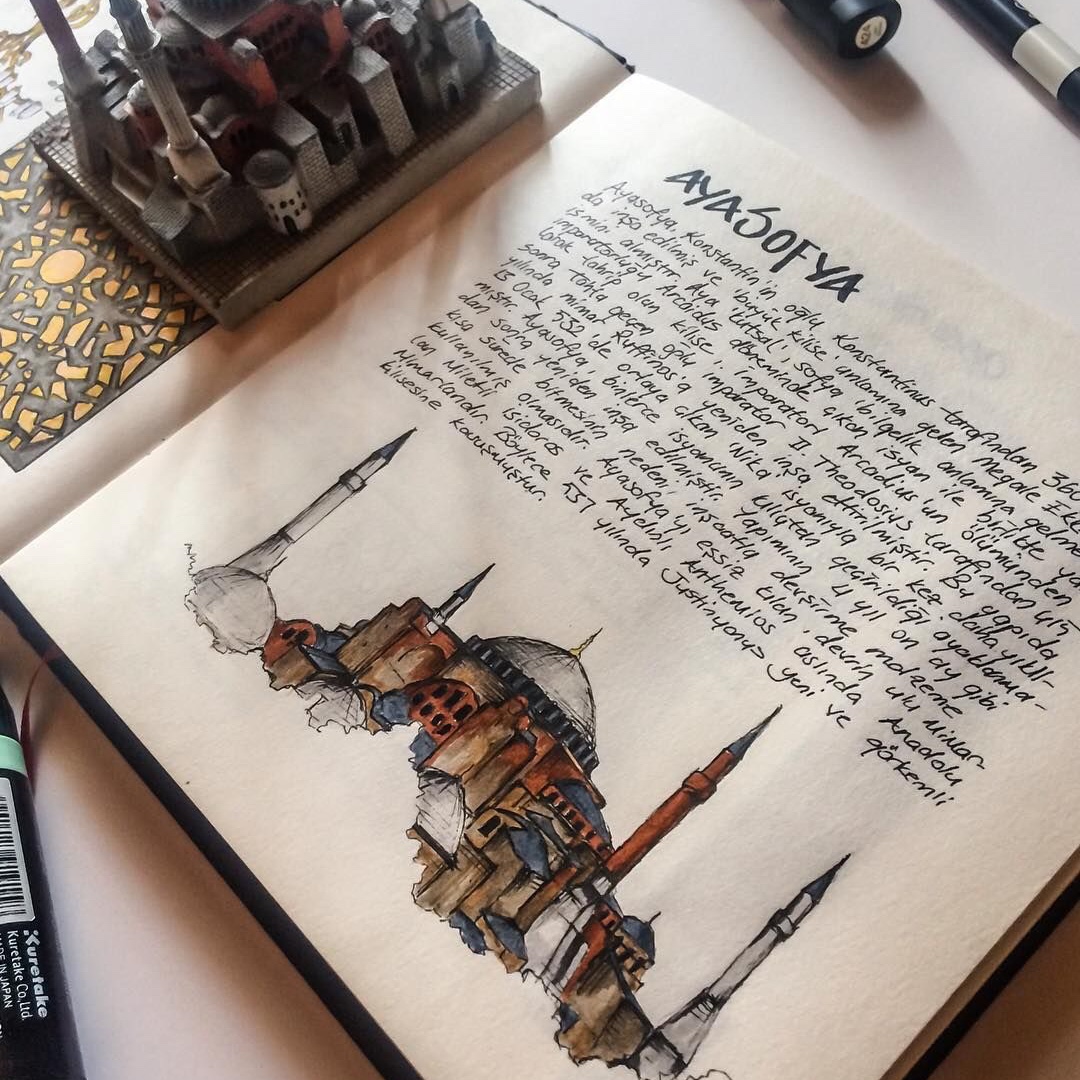 AYASOFYA
Ayasofya, Konstantin'in oğlu Konstantinus tarafından 360
da inşa edilmiş ve 'büyük kilise' anlamına gelen Megale Ekle
ismini almıştır. Aya 'kutsal', sofya 'bilgelik' anlamına gelme
imparatorluğu Arcadius döneminde çıkan isyan ile birlikte ya
larak tahrip olan kilise, imparator Arcadius'un ölümünden
sonra tahta geçen oğlu imparator II. Theodosius tarafından 415
yılında mimar Ruffinos'a yeniden inşa ettirilmiştir. Bu yapıda
15 Ocak 532'de ortaya çıkan Nika isyanıyla bir kez daha yıkıl-
mıştır. Ayasofya, binlerce isyancının kılıçtan geçirildiği ayaklanma-
dan sonra yeniden inşa edilmiştir. Yapımının 4 yıl on ay gibi
kısa sürede bitmesinin nedeni, inşaatta devşirme malzeme
kullanılmış olmasıdır. Ayasofya'yı eşsiz kılan, devrin ulu mimar-
ları Miletli İsidoros ve Anthemios aslında Anadolu
Mimarlarıdır. Böylece 537 yılında Justinyanus yeni ve görkemli
kilisesine kavuşmuştur.
Kuretake
Kuretake Co,Ltd.
MADE IN JAPAN